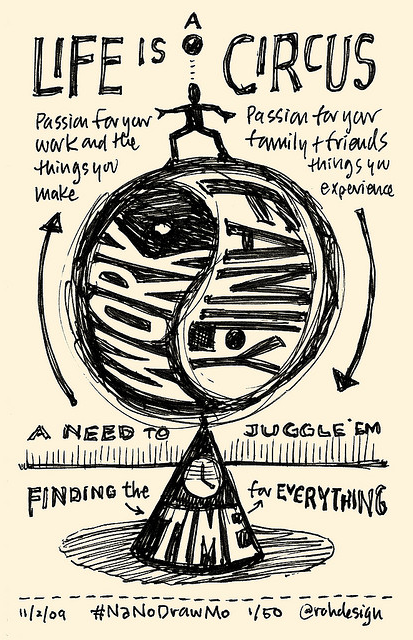 LIFE IS A CIRCUS
Passion for your
work and the
things you
make
Passion for your
family + friends
things you
experience
WORK
FAMILY
A NEED TO JUGGLE 'EM
FINDING the
TIME
for EVERYTHING
11/2/09 #NaNoDrawMo 1/50 @rohdesign